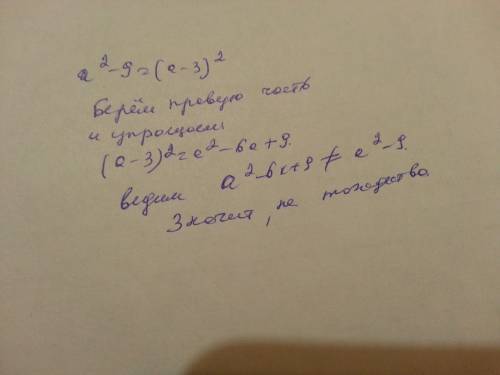 a²-9=(a-3)²
Берём правую часть
и упрощаем
(a-3)²=a²-6a+9.
видим a²-6a+9 ≠ a²-9.
Значит, не тождество